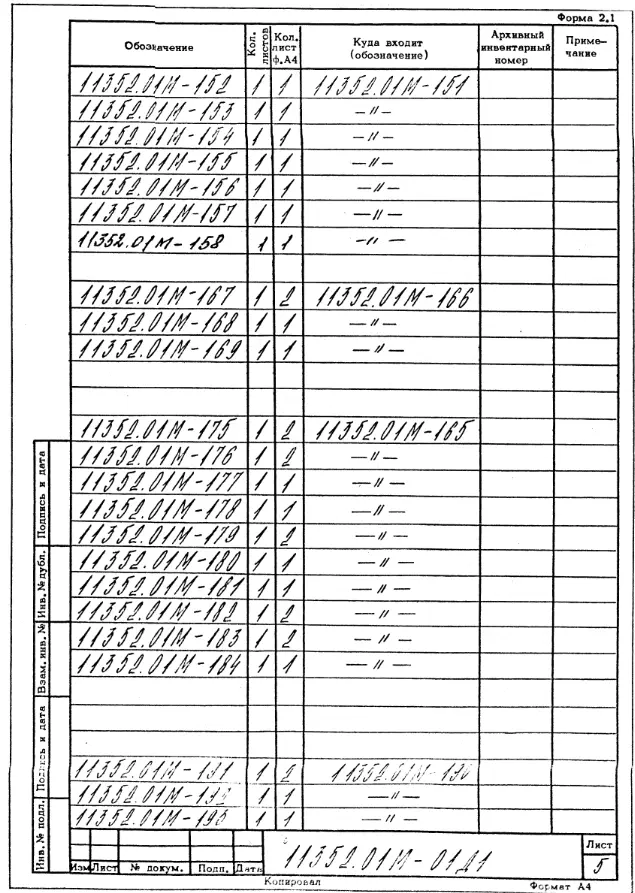 Форма 2.1
Обозначение Кол. листов Кол. лист ф.А4 Куда входит (обозначение) Архивный инвентарный номер Приме-чание
11352.01М-152 1 1 11352.01М-151
11352.01М-153 1 1 —〃—
11352.01М-154 1 1 —〃—
11352.01М-155 1 1 —〃—
11352.01М-156 1 1 —〃—
11352.01М-157 1 1 —〃—
11352.01М-158 1 1 —〃—
11352.01М-167 1 2 11352.01М-166
11352.01М-168 1 1 —〃—
11352.01М-169 1 1 —〃—
11352.01М-175 1 2 11352.01М-165
11352.01М-176 1 2 —〃—
11352.01М-177 1 1 —〃—
11352.01М-178 1 1 —〃—
11352.01М-179 1 2 —〃—
11352.01М-180 1 1 —〃—
11352.01М-181 1 1 —〃—
11352.01М-182 1 2 —〃—
11352.01М-183 1 2 —〃—
11352.01М-184 1 1 —〃—
11352.01М-191 1 2 11352.01М-190
11352.01М-192 1 1 —〃—
11352.01М-193 1 1 —〃—
Подпись и дата
Инв.№дубл.
Взам. инв. №
Подпись и дата
Инв.№ подл.
Изм Лист № докум. Подп. Дата
11352.01М-01Д1
Лист
5
Копировал Формат А4